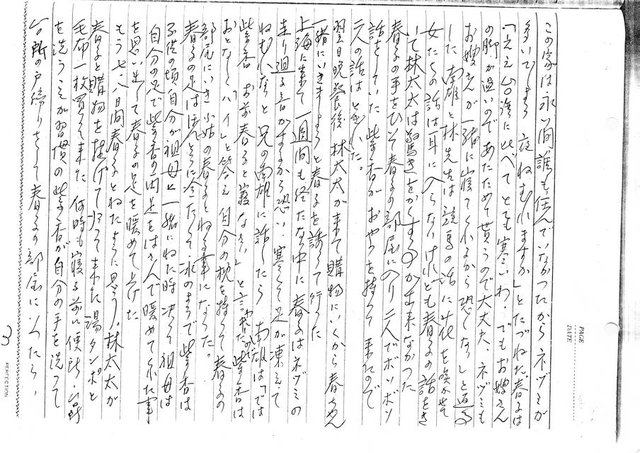 この家は永い間誰も住んでいなかったからネヅミが
多いでしょう 夜ねむれますか」とたづねた 春るは
「ええ台湾に比べてとても寒いわ、でもお姉さん
の脚が温いのであたためて貰うので大丈夫、ネヅミも
お姉さんが一緒に寝てくれるから恐しくない」と
した 南雄と林先生は競馬の話に花を咲かせ
女たちの話は耳に入らないけれども春るの話をき
いて林太太は驚きをかくすることが出来なかった
春るの手をひいて春るの部屋に入り二人でボソボソ
話をしていた 紫香がおやつを持って来たので
二人の話はとぎれた。
翌日晩餐後 林太太が来て購物にいくから春るちゃん
一緒にいきましょうと春るを誘って行った
上海に来て一週間も経たない中に春るはネヅミの
走り廻る音がするから恐い、寒くて足が凍えて
ねむれないと兄の南雄に話したら 南雄は では
紫香 お前春ると寝なさい」と言われた 紫香は
おとなしくハイと答え自分の枕を持って春るの
部屋にいき小姑の春るとねる事になった。
春るの足はほんとうに冷たくて氷のようで紫香は
子供の頃自分が祖母と一緒にねた時 決って祖母は
自分の足で紫香の両足をはさんで暖めてくれた事
を思い出して春るの足を暖めて上げた
もう七、八日間春るとねたように思う、林太太が
春ると購物を提げて帰って来た 湯タンポと
毛布一枚買って来た 何時も寝る前に便所、台所
を洗うのが習慣の紫香が自分の手を洗って
台所の戸締りをして春るの部屋に入ったら、
3
PAGE
DATE